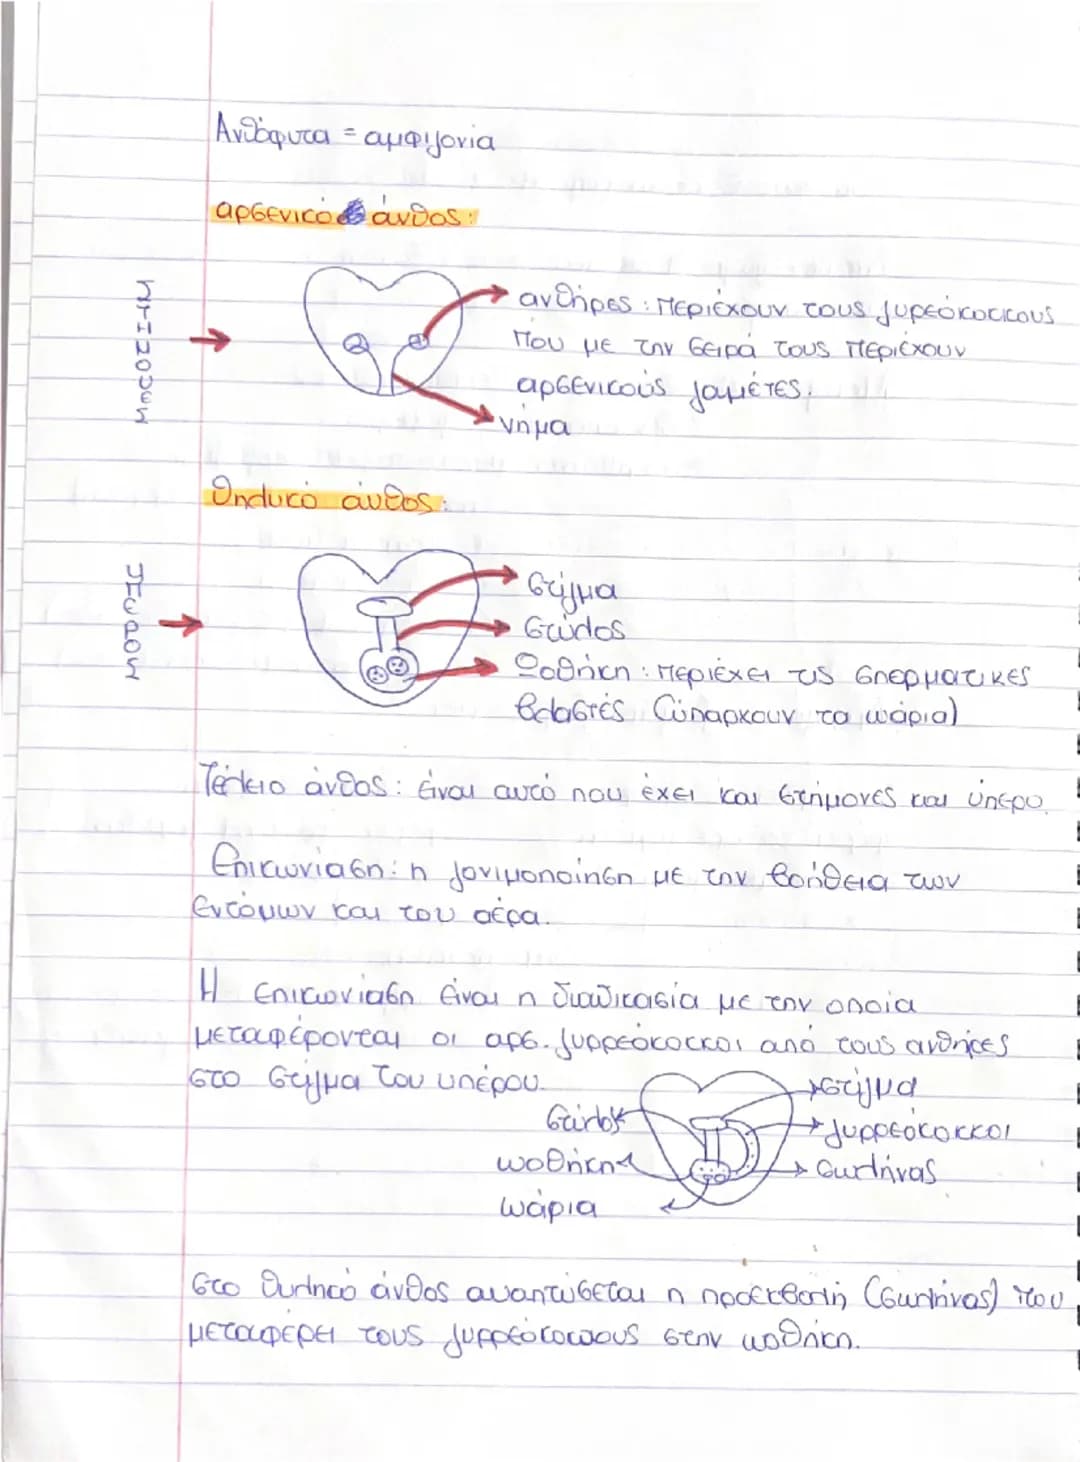 Ανθόφυτα = αμφιγονία
αρσενικό άνθος:
ΣΤΗΜΟΝΕΣ
ανθήρες: περιέχουν τους γυρεόκοκκους
που με την σειρά τους περιέχουν
αρσενικούς γαμέτες.
νήμα
θηλυκό άνθος:
ΥΠΕΡΟΣ
στίγμα
στύλος
Ωοθήκη: περιέχει τις σπερματικές
βλαστές (ύπαρχουν τα ωάρια)
Τέλειο άνθος: είναι αυτό που έχει και στήμονες και ύπερο
Επικονίαση: η γονιμοποίηση με την βοήθεια των
εντόμων και του αέρα.
Η επικονίαση είναι η διαδικασία με την οποία
μεταφέρονται οι αρσ. γυρρεόκοκκοι από τους ανθήρες
στο στίγμα του υπέρου.
στίγμα
στύλος
γυρρεόκοκκοι
ωοθήκη
σωλήνας
ωάρια
στο θηλυκό άνθος αναπτύσεται η προεκβολή (σωλήνας) που
μεταφέρει τους γυρρεόκοκκους στην ωοθήκη.